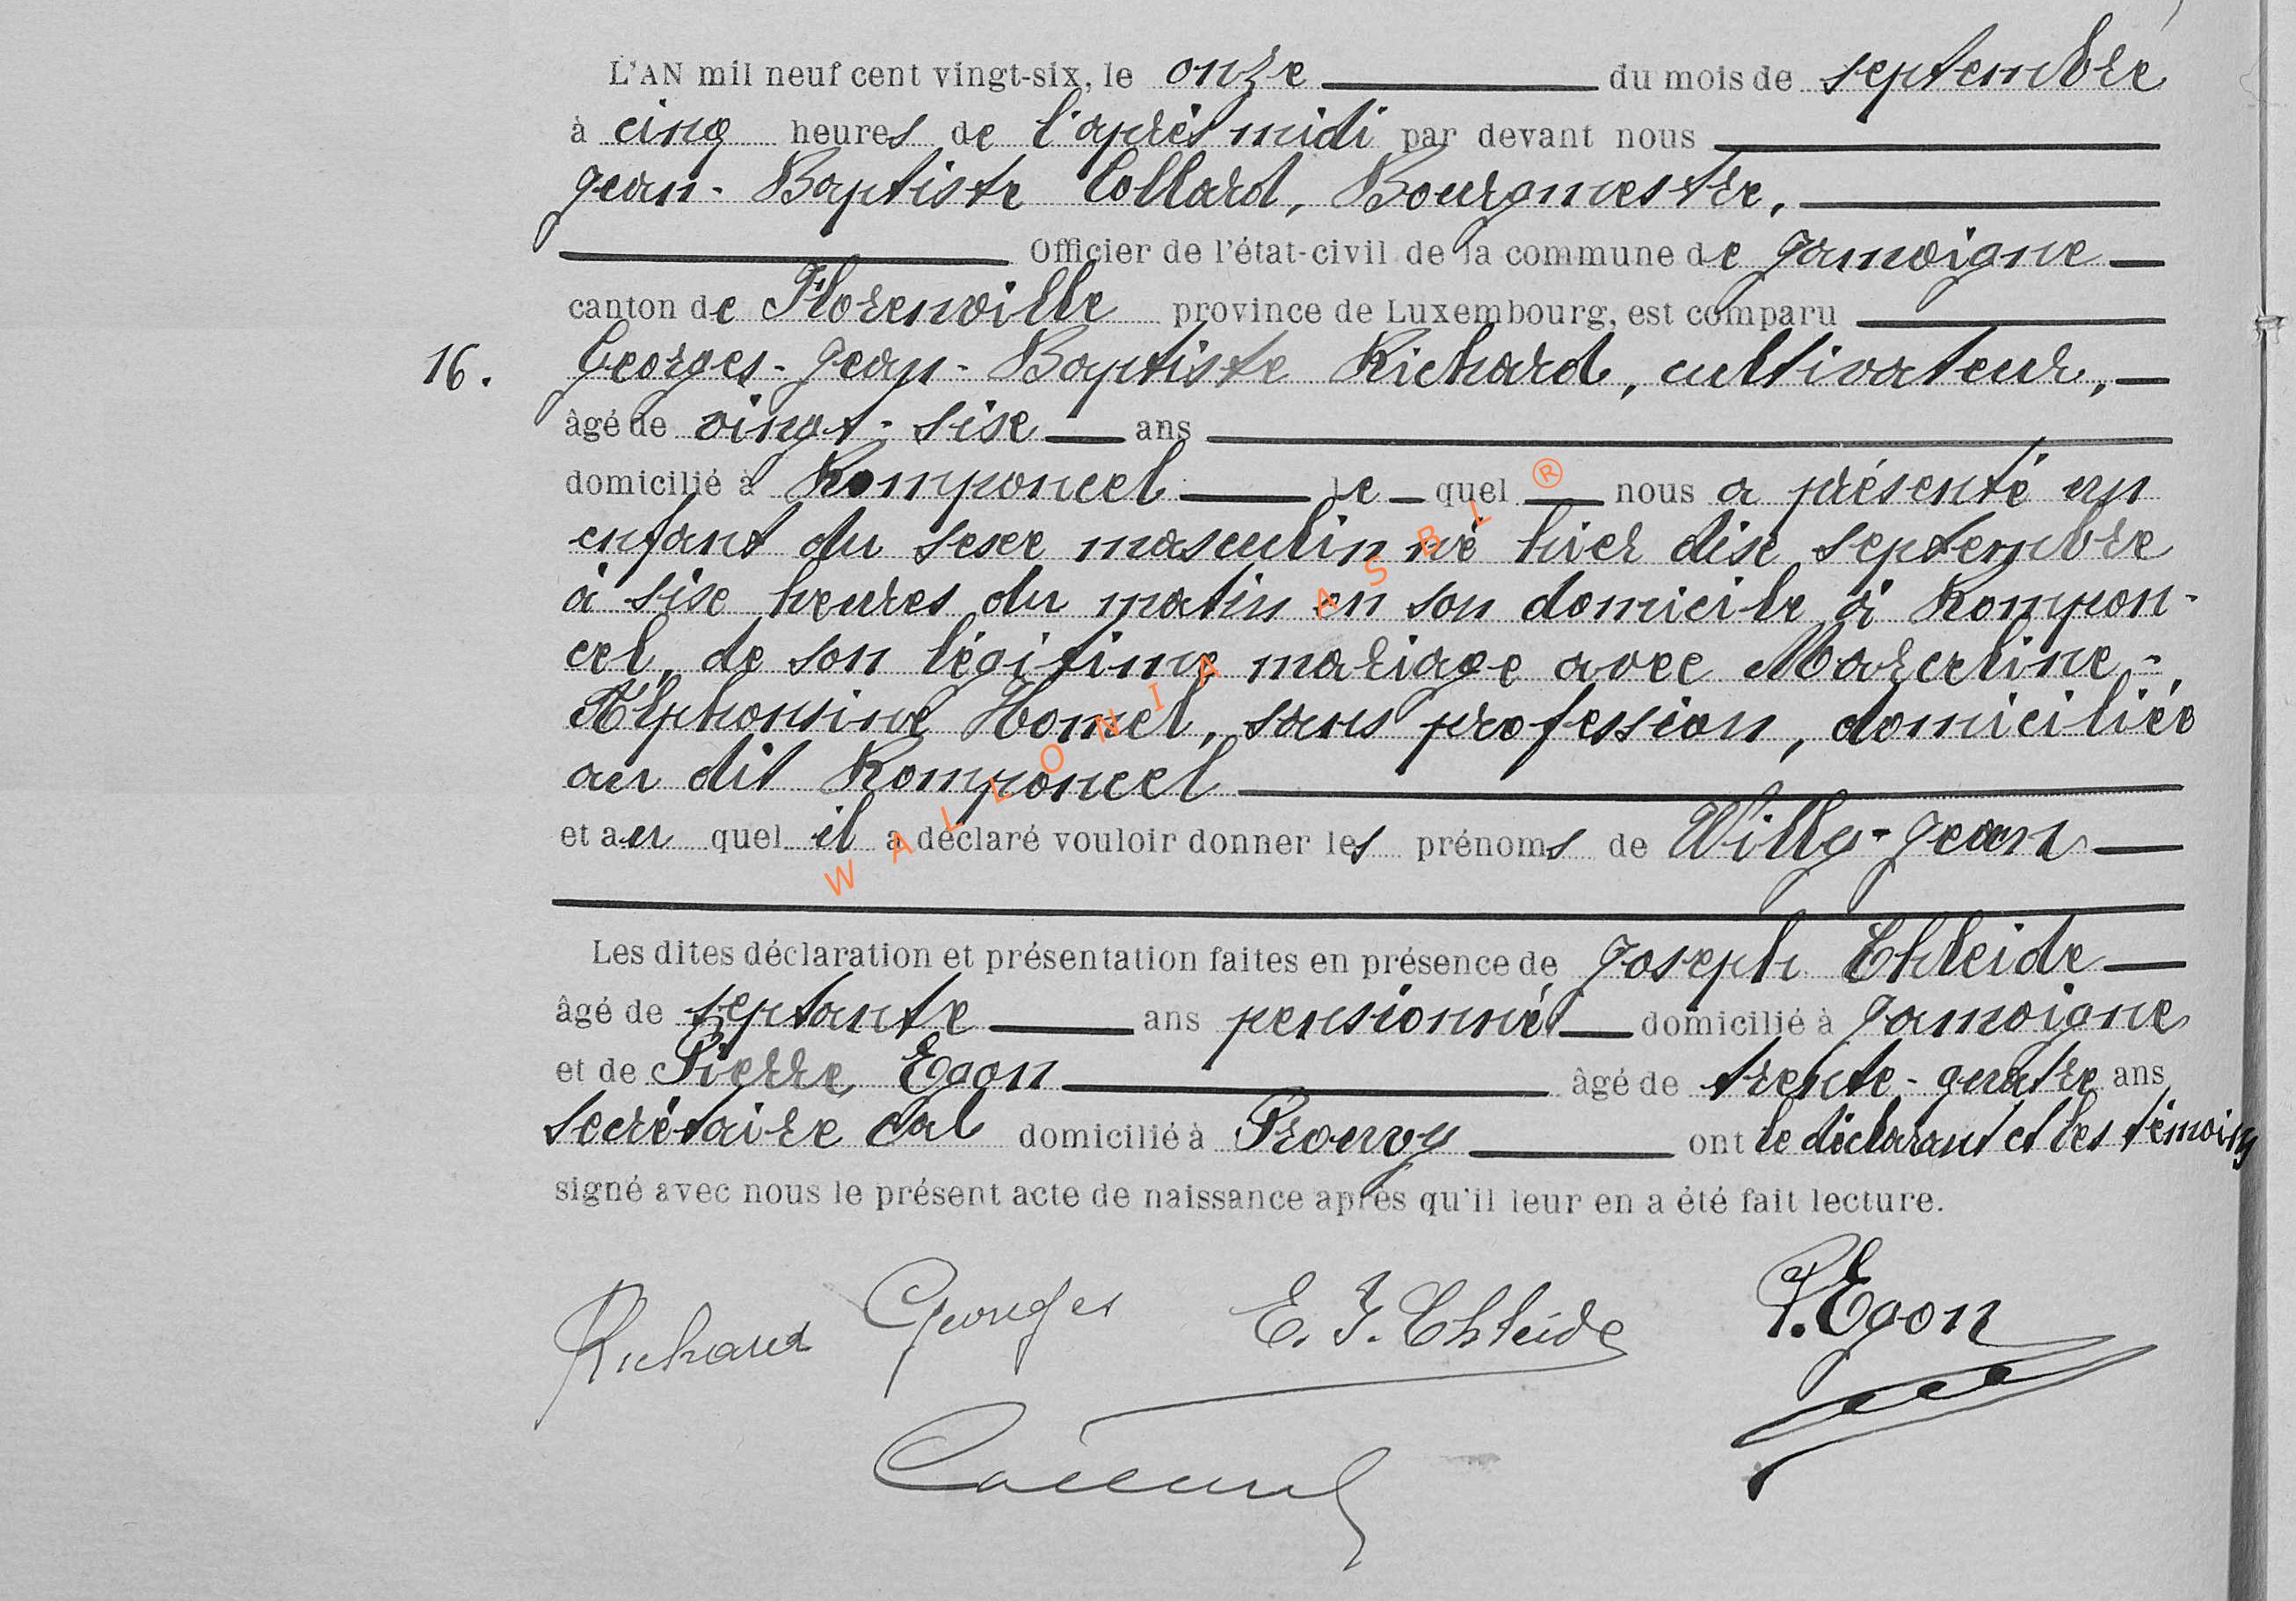 L'AN mil neuf cent vingt-six, le onze du mois de septembre
à cinq heures de l'après midi par devant nous
Jean-Baptiste Collard, Bourgmestre,
Officier de l'état-civil de la commune de Jamoigne
canton de Florenville province de Luxembourg, est comparu
16. Georges-Jean-Baptiste Richard, cultivateur,
âgé de vingt-six ans
domicilié à Romponcel le quel nous a présenté un
enfant du sexe masculin né hier dix septembre
à six heures du matin en son domicile à Rompon-
cel, de son légitime mariage avec Marceline-
Alphonsine Homel, sans profession, domiciliée
au dit Romponcel
et au quel il a déclaré vouloir donner les prénoms de Willy-Jean
Les dites déclaration et présentation faites en présence de Joseph Thleide
âgé de septante ans pensionné domicilié à Jamoigne
et de Pierre Egon âgé de trente-quatre ans
secrétaire cal domicilié à Prouvy ont le déclarant et les témoins
signé avec nous le présent acte de naissance après qu'il leur en a été fait lecture.
Richard Georges E. J. Thleide P. Egon
WALLONIA ASBL ®